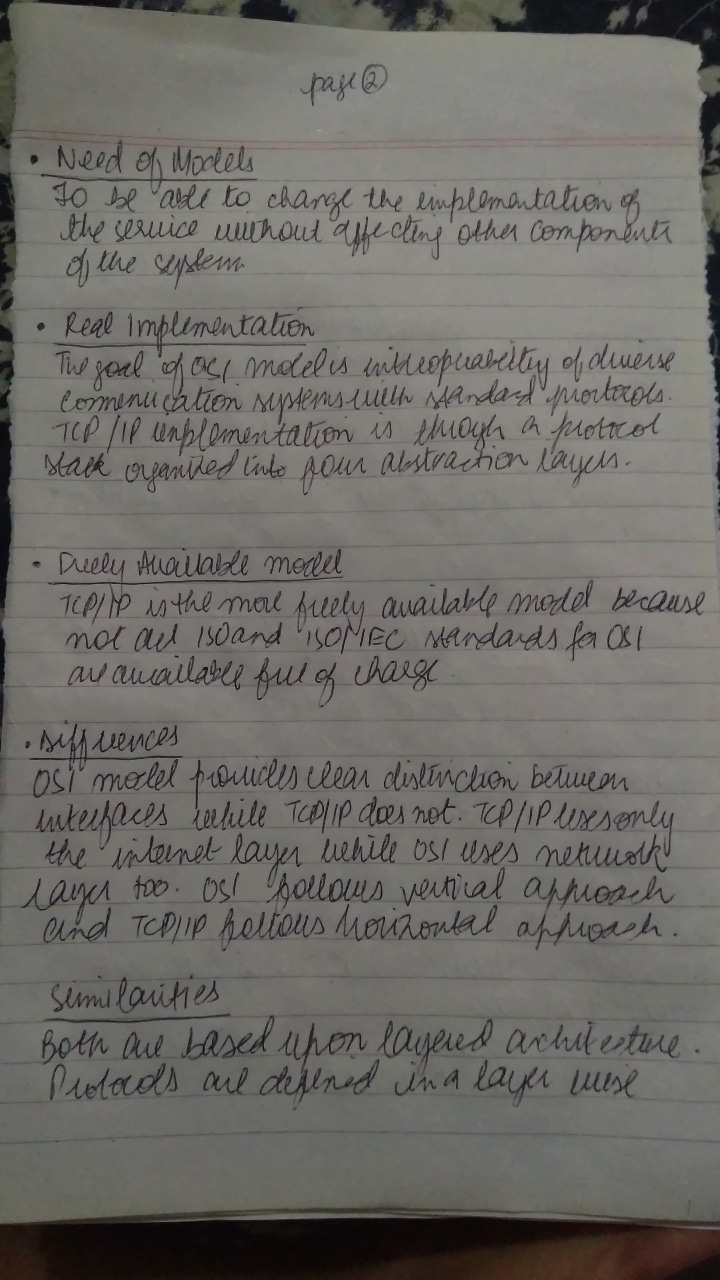 page ②
• Need of Models
To be able to change the implementation of
the service without affecting other components
of the system.
• Real Implementation
The goal of OSI model is interoperability of diverse
communication systems with standard protocols.
TCP/IP implementation is through a protocol
stack organized into four abstraction layers.
• Freely Available model
TCP/IP is the more freely available model because
not all ISO and ISO/IEC standards for OSI
are available free of charge.
• Differences
OSI model provides clear distinction between
interfaces while TCP/IP does not. TCP/IP uses only
the internet layer while OSI uses network
layer too. OSI follows vertical approach
and TCP/IP follows horizontal approach.
Similarities
Both are based upon layered architecture.
Protocols are defined in a layer wise